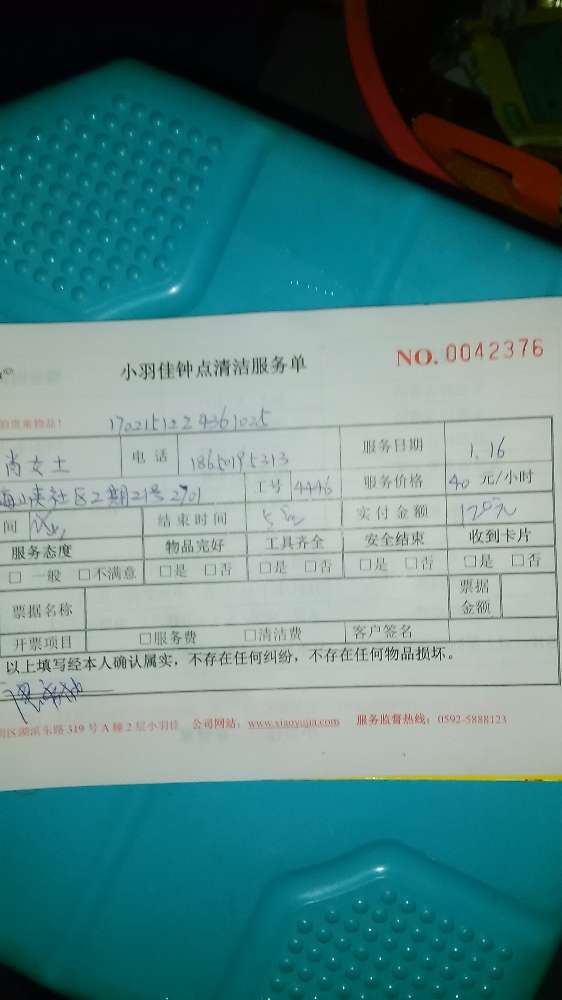 小羽佳钟点清洁服务单 NO. 0042376
贵重物品!
肖女士 电话 18650195313 服务日期 1.16
区2期21号2701 工号 4446 服务价格 40 元/小时
间 结束时间 实付金额 120元
服务态度 物品完好 工具齐全 安全结束 收到卡片
□ 一般 □不满意 □是 □否 □是 □否 □是 □否 □是 □否
票据名称 票据金额
开票项目 □服务费 □清洁费 客户签名
以上填写经本人确认属实,不存在任何纠纷,不存在任何物品损坏。
区湖滨东路 319 号 A 幢 2 层小羽佳 公司网站: www.xiaoyujia.com 服务监督热线: 0592-5888123